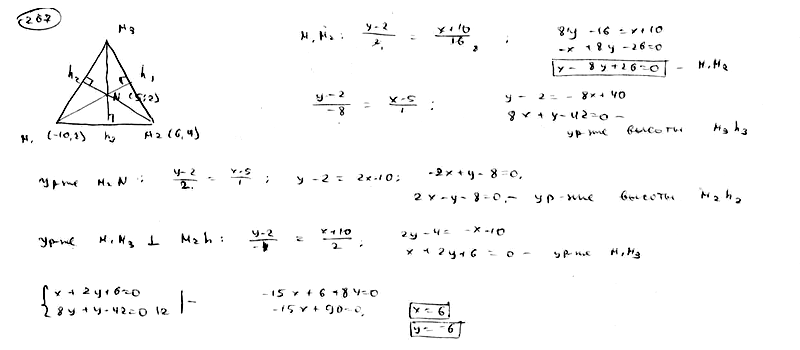 267
M3
h2 h1
N (5;2)
M1 (-10,2) h3 M2 (6,4)
M1M2: (y-2)/2 = (x+10)/16 8 ; 8y-16=x+10
-x+8y-26=0
x-8y+26=0 - M1M2
(y-2)/-8 = (x-5)/1 ; y-2=-8x+40
8x+y-42=0 -
ур-ие высоты M3h3
Ур-ие M2N: (y-2)/2 = (x-5)/1 ; y-2=2x-10; -2x+y-8=0,
2x-y-8=0, - ур-ние высоты M2h2
Ур-ие M1M3 ⊥ M2h: (y-2)/-1 = (x+10)/2 ; 2y-4=-x-10
x+2y+6=0 - ур-ие M1M3
{ x+2y+6=0 | - -15x+6+84=0
8x+y-42=0 |2 -15x+90=0, x=6
y=-6